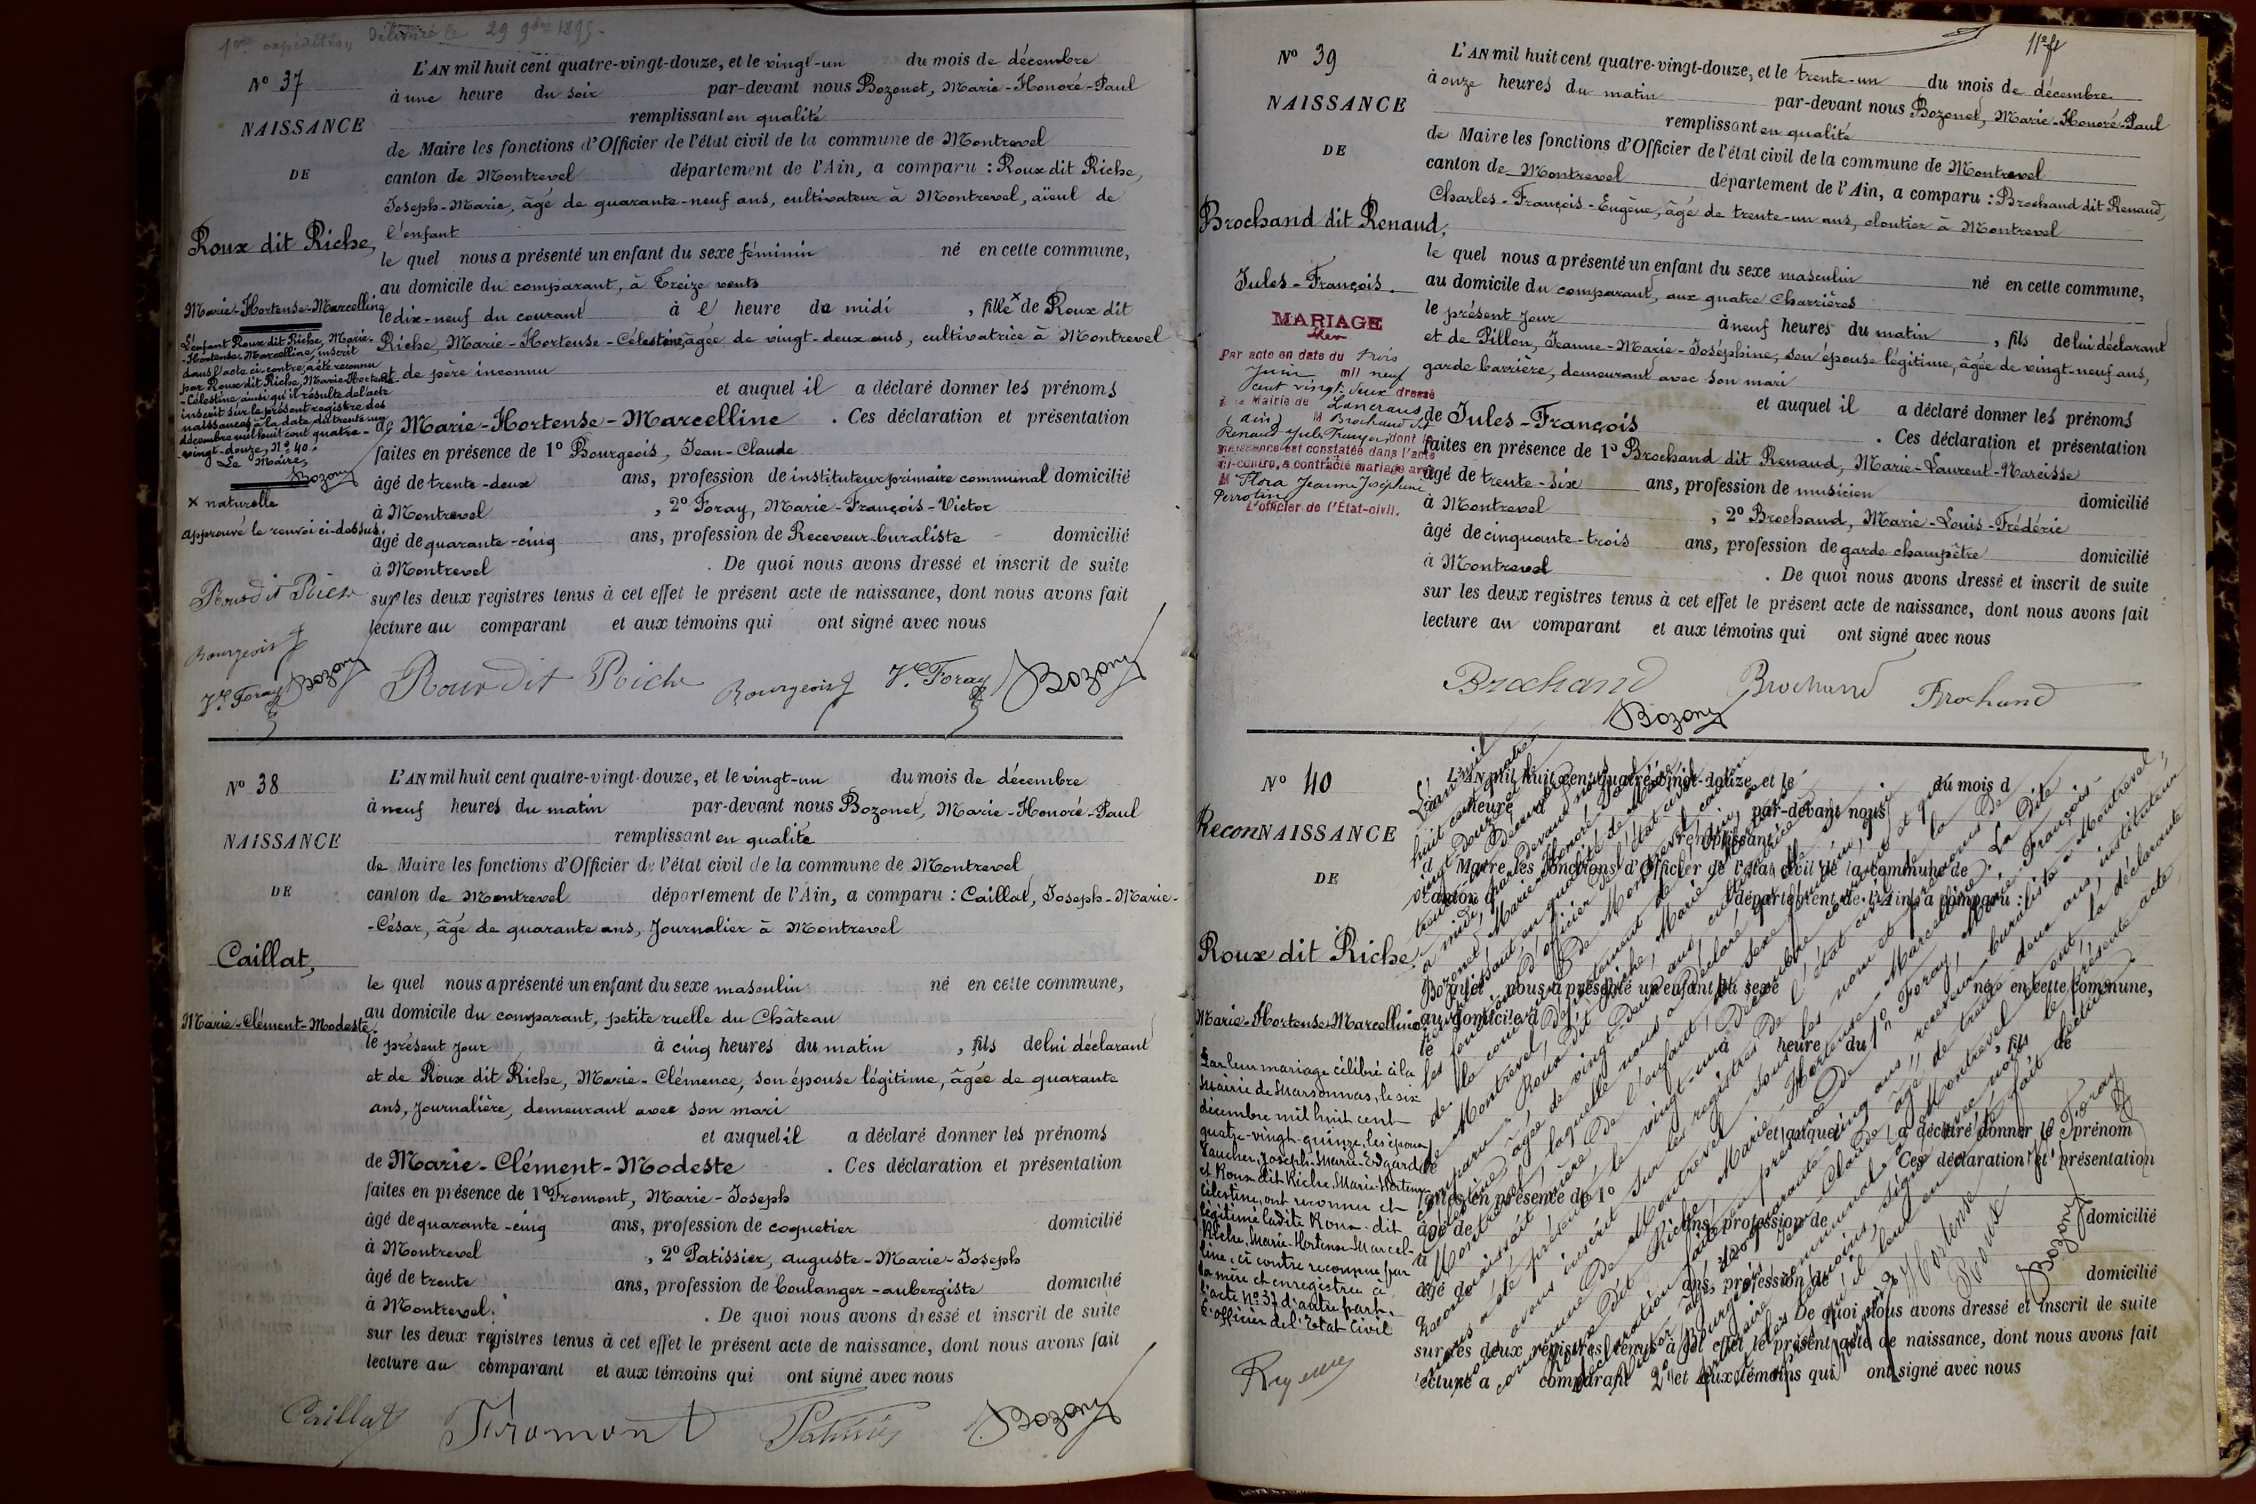 1ère expédition délivrée le 29 9bre 1895.
N° 37
NAISSANCE
DE
Roux dit Riche,
Marie-Hortense-Marcelline
L'enfant Roux dit Riche, Marie-
-Hortense-Marcelline, inscrit
dans l'acte ci-contre, a été reconnu
par Roux dit Riche, Marie-Hortense-
-Célestine ainsi qu'il résulte de l'acte
inscrit sur le présent registre des
naissances à la date du trente-un
décembre mil huit cent quatre-
-vingt-douze, N° 40.
Le Maire,
Bozonet
x naturelle
approuvé le renvoi ci-dessus.
Roux dit Riche
Bourgeois J
V.or Foray Bozonet
L'AN mil huit cent quatre-vingt-douze, et le vingt-un du mois de décembre
à une heure du soir par-devant nous Bozonet, Marie-Honoré-Paul
remplissant en qualité
de Maire les fonctions d'Officier de l'état civil de la commune de Montrevel
canton de Montrevel département de l'Ain, a comparu : Roux dit Riche,
Joseph-Marie, âgé de quarante-neuf ans, cultivateur à Montrevel, aïeul de
l'enfant
le quel nous a présenté un enfant du sexe féminin né en cette commune,
au domicile du comparant, à Treize vents
le dix-neuf du courant à l' heure de midi , fille x de Roux dit
Riche, Marie-Hortense-Célestine, âgée de vingt-deux ans, cultivatrice à Montrevel
et de père inconnu
et auquel il a déclaré donner les prénoms
de Marie-Hortense-Marcelline . Ces déclaration et présentation
faites en présence de 1° Bourgeois, Jean-Claude
âgé de trente-deux ans, profession de instituteur primaire communal domicilié
à Montrevel , 2° Foray, Marie-François-Victor
âgé de quarante-cinq ans, profession de Receveur-buraliste domicilié
à Montrevel . De quoi nous avons dressé et inscrit de suite
sur les deux registres tenus à cet effet le présent acte de naissance, dont nous avons fait
lecture au comparant et aux témoins qui ont signé avec nous
Roux dit Riche Bourgeois J V.or Foray Bozonet
N° 38
NAISSANCE
DE
Caillat,
Marie-Clément-Modeste.
L'AN mil huit cent quatre-vingt-douze, et le vingt-un du mois de décembre
à neuf heures du matin par-devant nous Bozonet, Marie-Honoré-Paul
remplissant en qualité
de Maire les fonctions d'Officier de l'état civil de la commune de Montrevel
canton de Montrevel département de l'Ain, a comparu : Caillat, Joseph-Marie-
-César, âgé de quarante ans, journalier à Montrevel
le quel nous a présenté un enfant du sexe masculin né en cette commune,
au domicile du comparant, petite ruelle du Château
le présent jour à cinq heures du matin , fils de lui déclarant
et de Roux dit Riche, Marie-Clémence, son épouse légitime, âgée de quarante
ans, journalière, demeurant avec son mari
et auquel il a déclaré donner les prénoms
de Marie-Clément-Modeste . Ces déclaration et présentation
faites en présence de 1° Fromont, Marie-Joseph
âgé de quarante-cinq ans, profession de coquetier domicilié
à Montrevel , 2° Patissier, auguste-Marie-Joseph
âgé de trente ans, profession de boulanger-aubergiste domicilié
à Montrevel . De quoi nous avons dressé et inscrit de suite
sur les deux registres tenus à cet effet le présent acte de naissance, dont nous avons fait
lecture au comparant et aux témoins qui ont signé avec nous
Caillat Fromont Patissier Bozonet
11e ft
N° 39
NAISSANCE
DE
Brochand dit Renaud,
Jules-François.
MARIAGE
Par acte en date du trois
Juin mil neuf
cent vingt-deux dressé
à la Mairie de Lancrans
(Ain) M Brochand dit
Renaud Jules François dont la
naissance est constatée dans l'acte
ci-contre, a contracté mariage avec
M Flora Jeanne Joséphine
Perrotin
L'officier de l'État-civil.
L'AN mil huit cent quatre-vingt-douze, et le trente-un du mois de décembre
à onze heures du matin par-devant nous Bozonet, Marie-Honoré-Paul
remplissant en qualité
de Maire les fonctions d'Officier de l'état civil de la commune de Montrevel
canton de Montrevel département de l'Ain, a comparu : Brochand dit Renaud,
Charles-François-Eugène, âgé de trente-un ans, cloutier à Montrevel
le quel nous a présenté un enfant du sexe masculin né en cette commune,
au domicile du comparant, aux quatre Charrières
le présent jour à neuf heures du matin , fils de lui déclarant
et de Pillon, Jeanne-Marie-Joséphine, son épouse légitime, âgée de vingt-neuf ans,
garde barrière, demeurant avec son mari
et auquel il a déclaré donner les prénoms
de Jules-François . Ces déclaration et présentation
faites en présence de 1° Brochand dit Renaud, Marie-Laurent-Narcisse
âgé de trente-six ans, profession de musicien domicilié
à Montrevel , 2° Brochand, Marie-Louis-Frédéric
âgé de cinquante-trois ans, profession de garde champêtre domicilié
à Montrevel . De quoi nous avons dressé et inscrit de suite
sur les deux registres tenus à cet effet le présent acte de naissance, dont nous avons fait
lecture au comparant et aux témoins qui ont signé avec nous
Brochand Brochand Brochand
Bozonet
N° 40
ReconNAISSANCE
DE
Roux dit Riche
Marie-Hortense-Marcelline
Par leur mariage célébré à la
Mairie de Marsonnas, le six
décembre mil huit cent
quatre-vingt-quinze, les époux
Faucher, Joseph-Marie-Edgard
et Roux dit Riche, Marie-Hortense
Célestine, ont reconnu et
légitimé ladite Roux dit
Riche, Marie-Hortense-Marcel-
line, ci contre reconnue par
la mère et enregistrée à
l'acte N° 37 d'autre part.
L'officier de l'Etat Civil
L'AN mil huit cent quatre-vingt-douze, et le du mois d
à heure par-devant nous
remplissant
Maire les fonctions d'Officier de l'état civil de la commune de
canton d département de l'Ain, a comparu :
quel nous a présenté un enfant du sexe né en cette commune,
au domicile d
le à heure du , fils de
et auquel a déclaré donner le prénom
Ces déclaration et présentation
faites en présence de 1°
âgé de ans, profession de domicilié
à
âgé de ans, profession de domicilié
De quoi nous avons dressé et inscrit de suite
sur les deux registres tenus à cet effet le présent acte de naissance, dont nous avons fait
lecture a comparant et aux témoins qui ont signé avec nous
L'an mil
huit cent quatre
vingt douze et le
trente-un Décembre
à midi, par devant nous
Bozonet, Marie-Honoré-Paul
remplissant en qualité de Maire
les fonctions d'officier de l'état civil
de la commune de Montrevel, canton
de Montrevel, département de l'Ain,
a comparu Roux dit Riche, Marie-Hortense-
Célestine, âgée de vingt-deux ans, cultivatrice
à Montrevel, laquelle nous a déclaré
Hortense
Roux
Foray
Bozonet